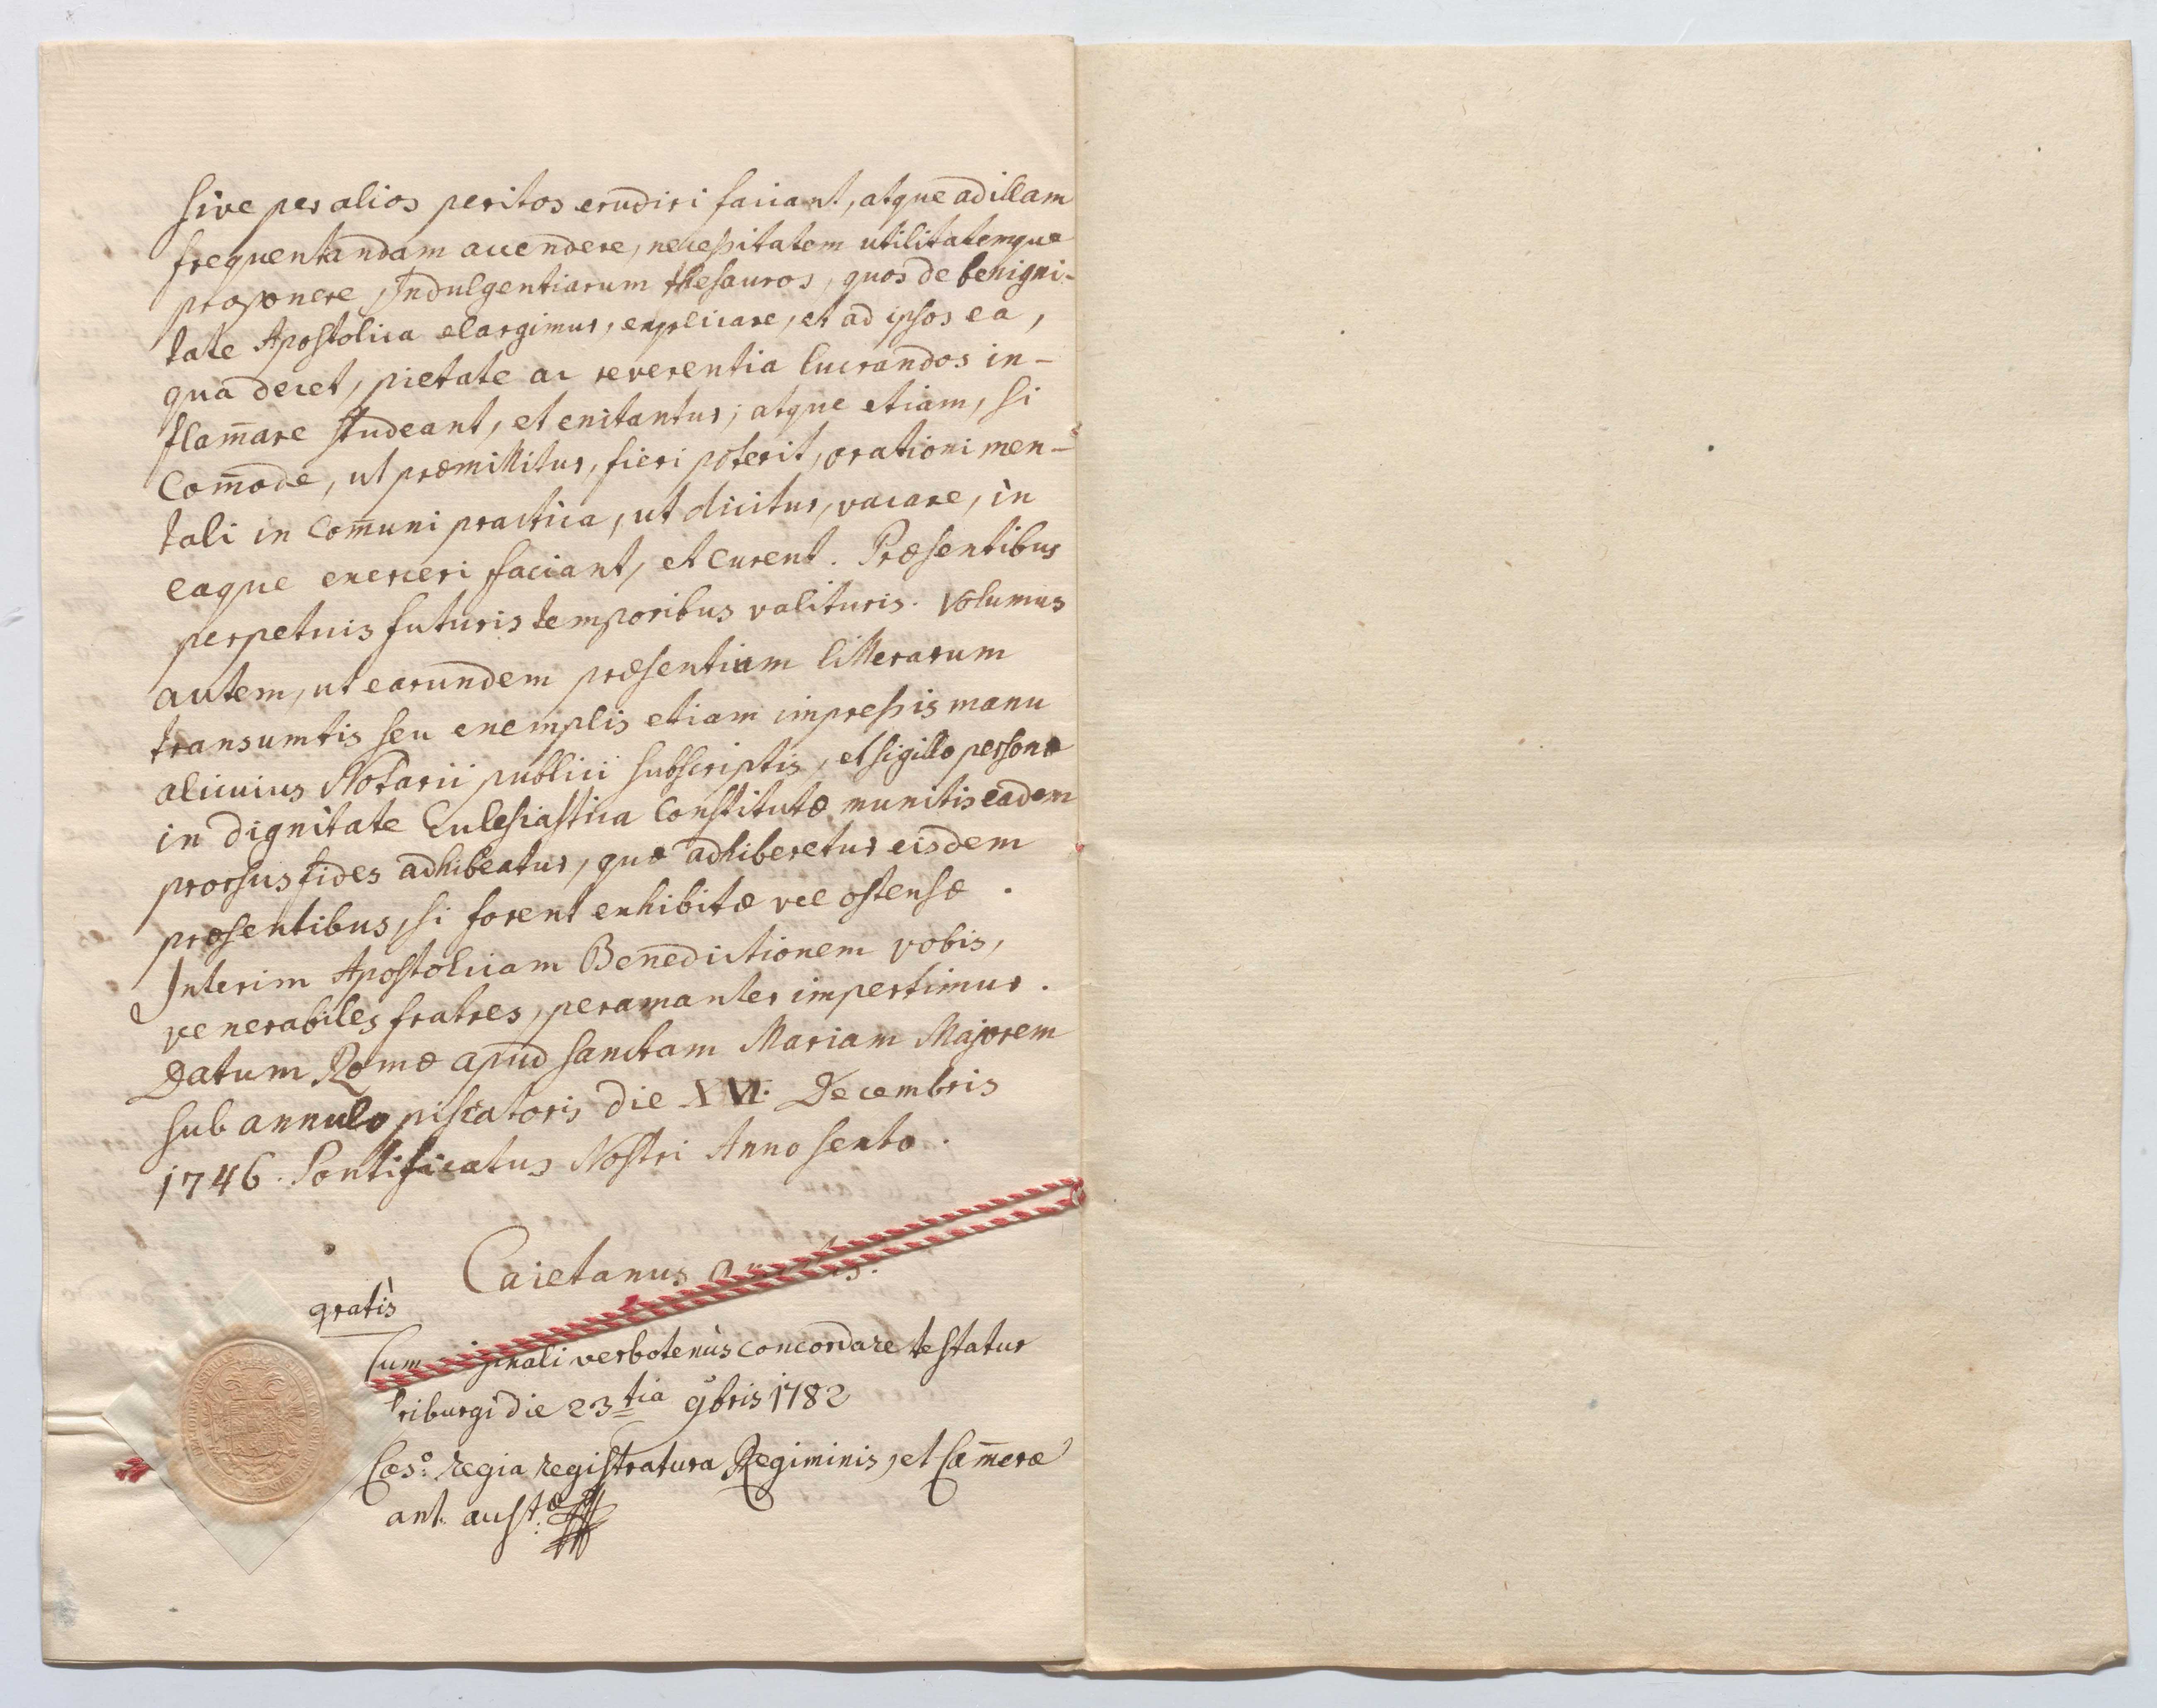 sive per alios peritos erudiri faciant, atque ad illam
frequentandam accendere, necessitatem utilitatemque
proponere, Indulgentiarum thesauros, quos de benigni-
tate Apostolica elargimur, explicare, et ad ipsos ea,
qua decet, pietate ac reverentia lucrandos in-
flam̄are studeant, et enitantur; atque etiam, si
Com̄ode, ut præmittitur, fieri poterit, orationi men-
tali in Com̄uni practica, ut dicitur, vacare, in
eaque exerceri faciant, et curent. Præsentibus
perpetuis futuris temporibus valituris. Volumus
autem, ut earundem præsentium litterarum
transumtis seu exemplis etiam impressis manu
alicuius Notarii publici subscriptis, et sigillo personæ
in dignitate Ecclesiastica Constitutæ munitis eadem
prorsus fides adhibeatur, quæ adhiberetur eisdem
præsentibus, si forent exhibitæ vel ostensæ.
Interim Apostolicam Benedictionem vobis,
venerabiles fratres, peramanter impertimur.
Datum Romæ apud Sanctam Mariam Majorem
sub annulo piscatoris die XVI. Decembris
1746. Pontificatus Nostri Anno sexto.
Caietanus
gratis
Cum verbotenùs concordare testatur
die 23tia 9bris 1782
Cæs:o regia registratura Regiminis, et Cam̄eræ
ant. aust:æ